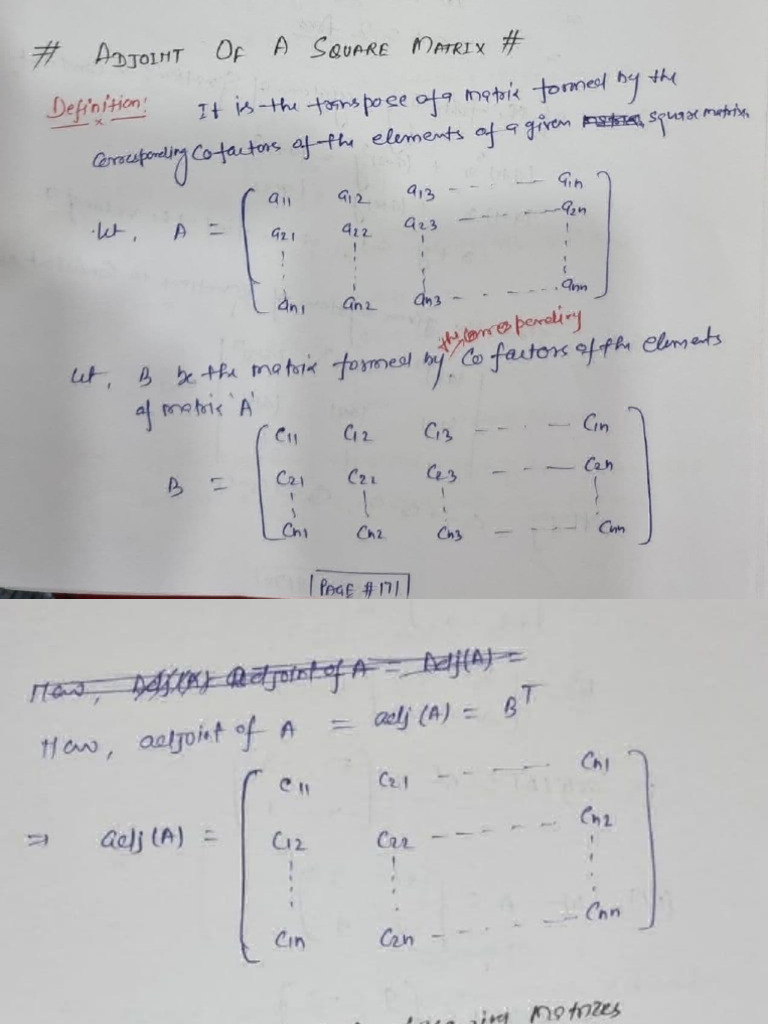 # ADJOINT OF A SQUARE MATRIX #
Definition: It is the transpose of a matrix formed by the
corresponding cofactors of the elements of a given square matrix.
Let, A =
a11 a12 a13 - - - - - a1n
a21 a22 a23 - - - - - a2n
an1 an2 an3 - - - - - ann
the corresponding
Let, B be the matrix formed by Cofactors of the elements
of matrix 'A'
B =
C11 C12 C13 - - - - - C1n
C21 C22 C23 - - - - - C2n
Cn1 Cn2 Cn3 - - - - - Cnn
PAGE #171
Now, Adj(A) Adjoint of A = Adj(A) =
Now, adjoint of A = adj(A) = B^T
⇒ adj(A) =
C11 C21 - - - - - Cn1
C12 C22 - - - - - Cn2
C1n C2n - - - - - Cnn
matrices